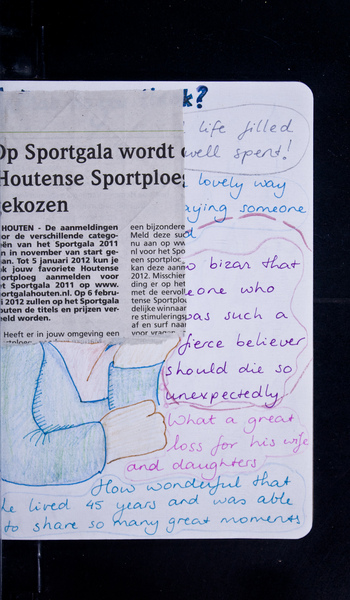 k?
life filled
well spent!
Op Sportgala wordt
Houtense Sportploeg
gekozen
HOUTEN - De aanmeldingen
voor de verschillende catego-
rieën van het Sportgala 2011
in november van start ge-
Tot 5 januari 2012 kun je
ook jouw favoriete Houtense
sportploeg aanmelden voor
het Sportgala 2011 op www.
sportgalahouten.nl. Op 6 febru-
ari 2012 zullen op het Sportgala
Houten de titels en prijzen ver-
deeld worden.
Heeft er in jouw omgeving een
een bijzondere
Meld deze
nu aan op
nl voor het
een sportploe
kan deze
2012. Misschien
ding er op het
met de eervolle
tense
delijke
re
af en surf naar
voor vragen
lovely way
saying someone
bizar that
one who
was such a
fierce believer
should die so
unexpectedly
What a great
loss for his wife
and daughters
How wonderful that
he lived 45 years and was able
to share so many great moments